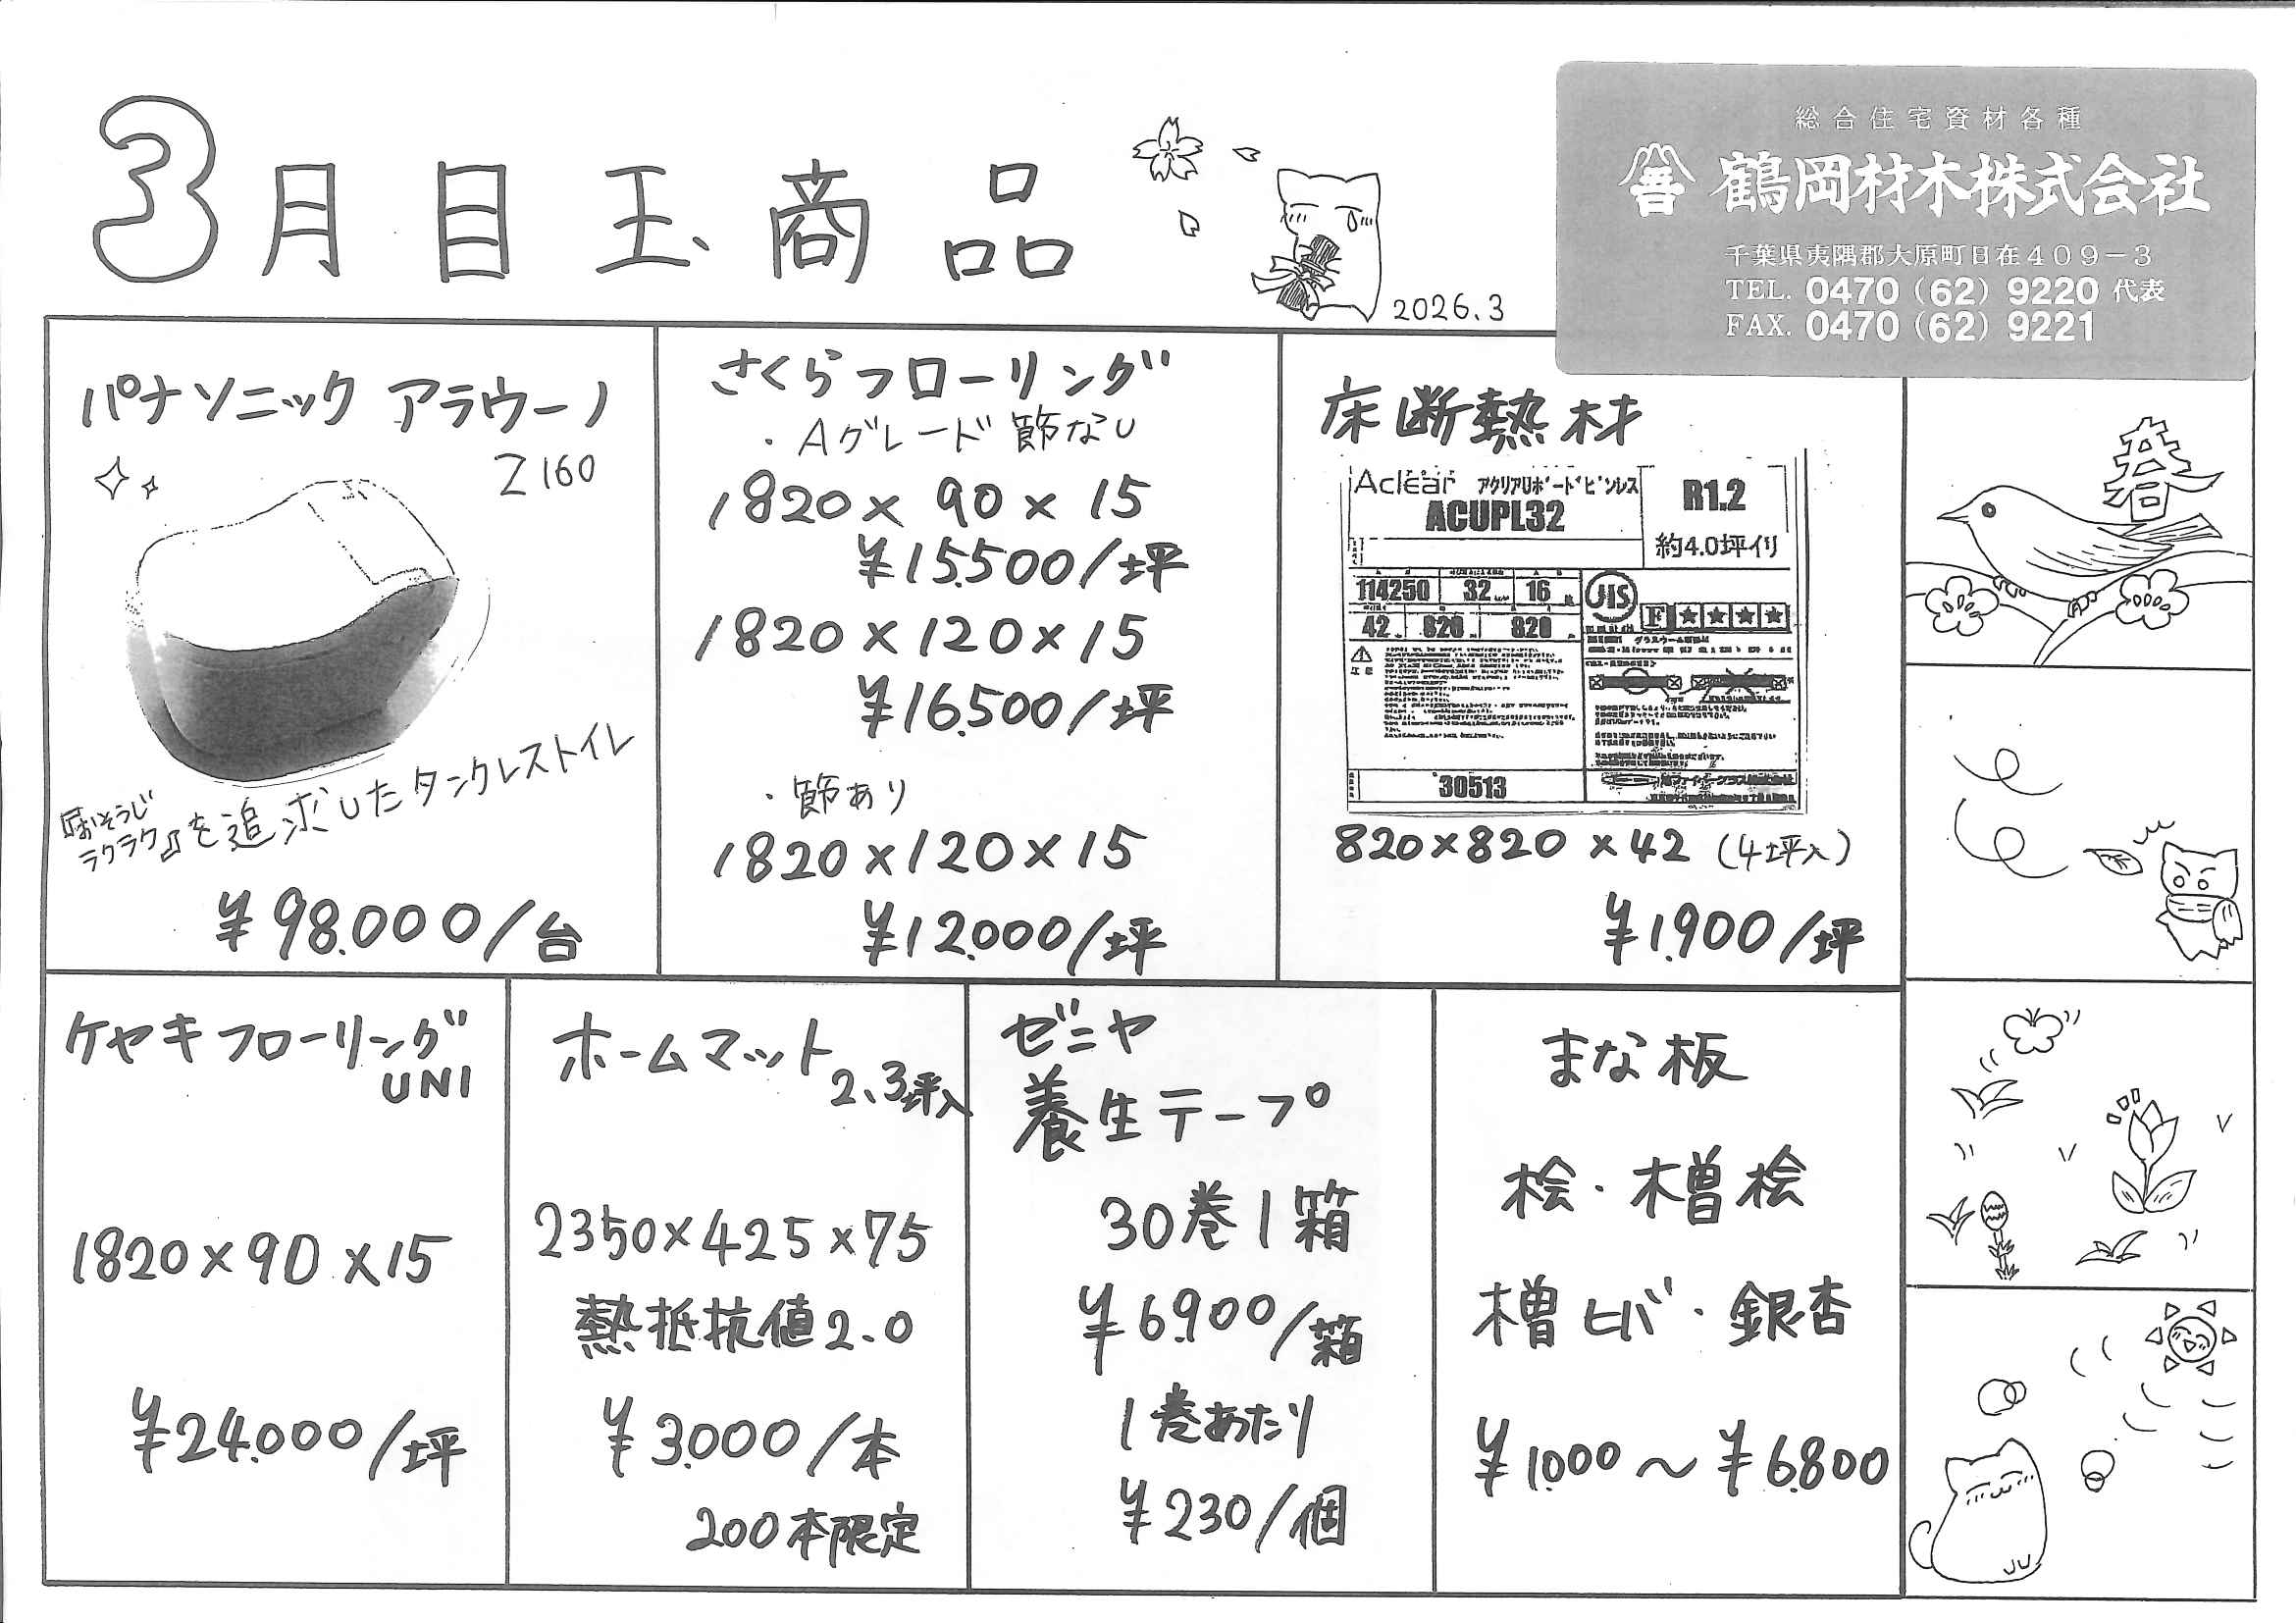 3月目玉商品
2026.3
総合住宅資材各種
善 鶴岡材木株式会社
千葉県夷隅郡大原町日在409-3
TEL. 0470 (62) 9220 代表
FAX. 0470 (62) 9221
パナソニック アラウーノ
Z160
『おそうじ
ラクラク』を追求したタンクレストイレ
¥98.000/台
さくらフローリング
・Aグレード 節なし
1820×90×15
¥15.500/坪
1820×120×15
¥16.500/坪
・節あり
1820×120×15
¥12.000/坪
床断熱材
Aclear アクリアUボードピンレス
ACUPL32
R1.2
約4.0坪イリ
114250 32 16
42 820 820
JIS
F★★★★
30513
820×820×42 (4坪入)
¥1.900/坪
春
ケヤキフローリング
UNI
1820×90×15
¥24.000/坪
ホームマット
2.3坪入
2350×425×75
熱抵抗値2.0
¥3.000/本
200本限定
ゼニヤ
養生テープ
30巻1箱
¥6.900/箱
1巻あたり
¥230/個
まな板
桧・木曽桧
檜ヒバ・銀杏
¥1.000～¥6.800